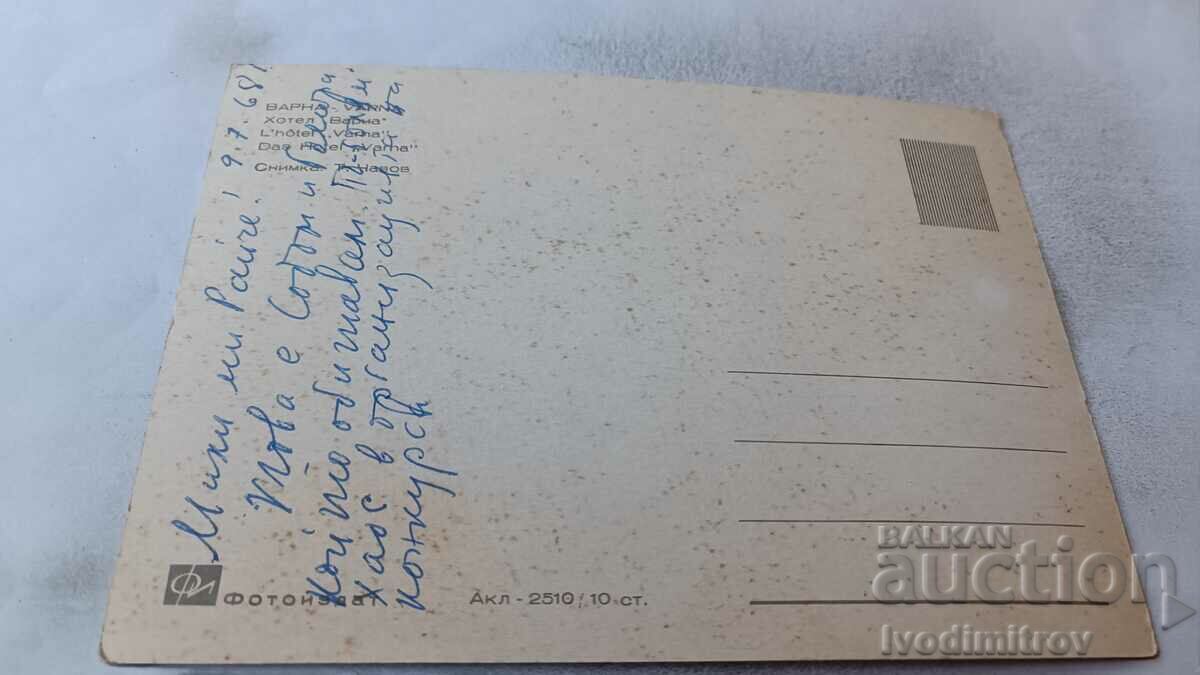 ВАРНА - VARNA
Хотел „Варна“
L'hôtel „Varna“
Das Hotel „Varna“
Снимка: П. Чапов
Мили ми Райче! 9.7.68 г.
Това е Собът и
който обитавам. По-голям
хаос в организацията на
конкурси
Фотоиздат
Акл - 2510 / 10 ст.
BALKAN
auction
Ivodimitrov